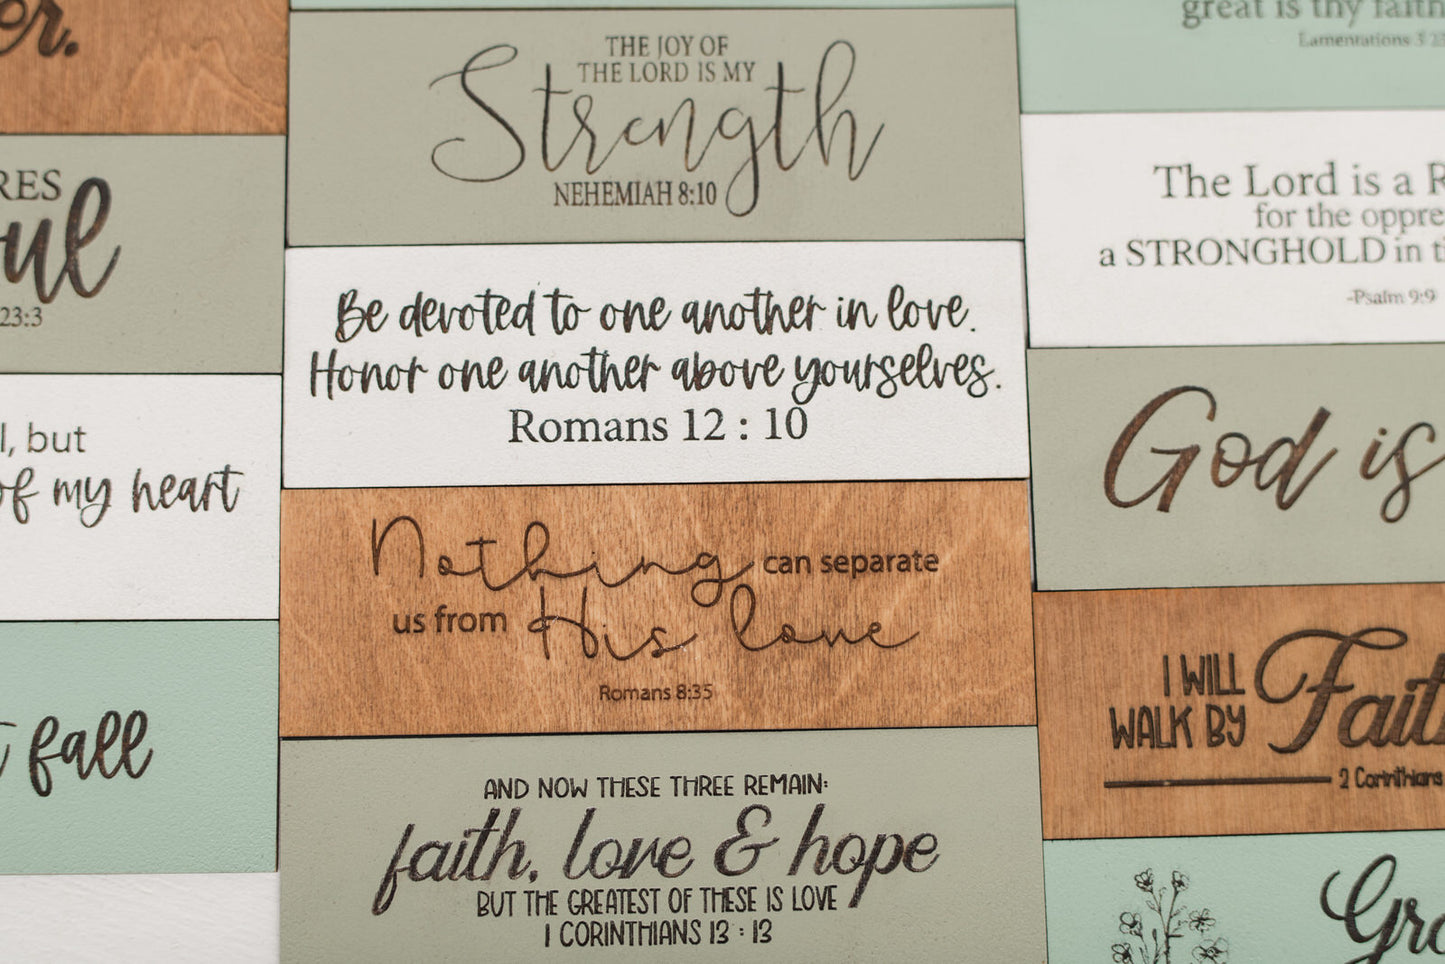 er.
RES
oul
23:3
l, but
of my heart
t fall
THE JOY OF
THE LORD IS MY
Strength
NEHEMIAH 8:10
Be devoted to one another in love.
Honor one another above yourselves.
Romans 12 : 10
Nothing can separate
us from His love
Romans 8:35
AND NOW THESE THREE REMAIN:
faith, love & hope
BUT THE GREATEST OF THESE IS LOVE
1 CORINTHIANS 13 : 13
great is thy faith
Lamentations 3
The Lord is a R
for the oppre
a STRONGHOLD in t
-Psalm 9:9
God is
I WILL
WALK BY Fait
2 Corinthians
Gro